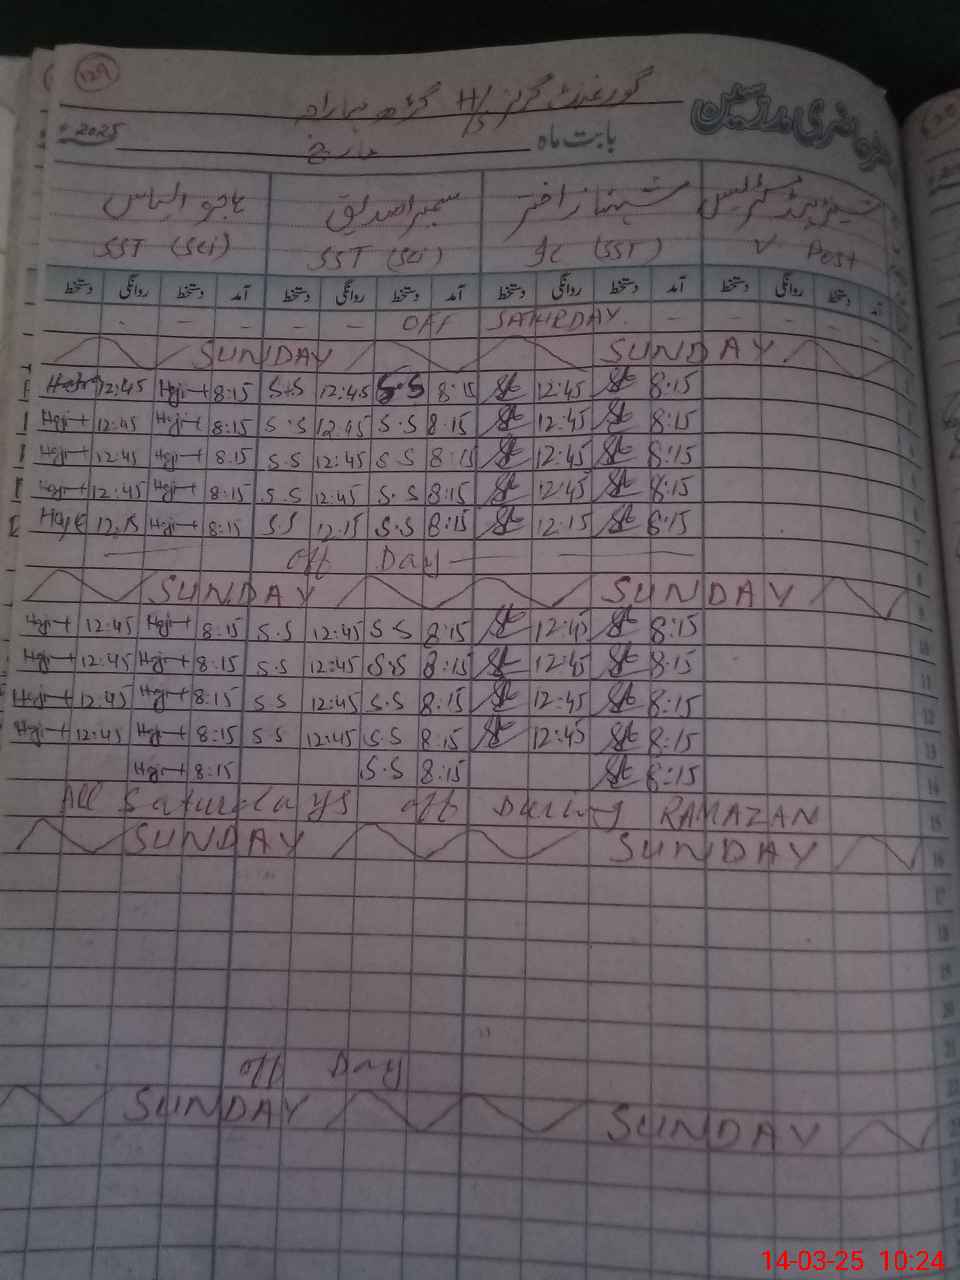 129
گورنمنٹ گرلز H/S
حاضری مدرسین
بابت ماہ مارچ 2025ء
شہناز اختر سمیرا صدیق ہاجرہ الیاس
V Post Ic (SST) SST (Sci) SST (Sci)
آمد دستخط روانگی دستخط آمد دستخط روانگی دستخط آمد دستخط روانگی دستخط آمد دستخط روانگی دستخط
- - - - - OFF SATURDAY - - - -
SUNDAY SUNDAY
12:45 Haji+ 8:15 S.S 12:45 S.S 8:15 St 12:45 St 8:15
Haji+ 12:45 Haji+ 8:15 S.S 12:45 S.S 8:15 St 12:45 St 8:15
Haji+ 12:45 Haji+ 8:15 S.S 12:45 S.S 8:15 St 12:45 St 8:15
Haji+ 12:45 Haji+ 8:15 S.S 12:45 S.S 8:15 St 12:45 St 8:15
12:15 Haji+ 8:15 S.S 12:15 S.S 8:15 St 12:15 St 8:15
Off Day
SUNDAY SUNDAY
Haji+ 12:45 Haji+ 8:15 S.S 12:45 S.S 8:15 St 12:45 St 8:15
Haji+ 12:45 Haji+ 8:15 S.S 12:45 S.S 8:15 St 12:45 St 8:15
Haji+ 12:45 Haji+ 8:15 S.S 12:45 S.S 8:15 St 12:45 St 8:15
Haji+ 12:45 Haji+ 8:15 S.S 12:45 S.S 8:15 St 12:45 St 8:15
Haji+ 8:15 S.S 8:15 St 8:15
All Saturdays off During RAMAZAN
SUNDAY SUNDAY
off Day
SUNDAY SUNDAY
14-03-25 10:24